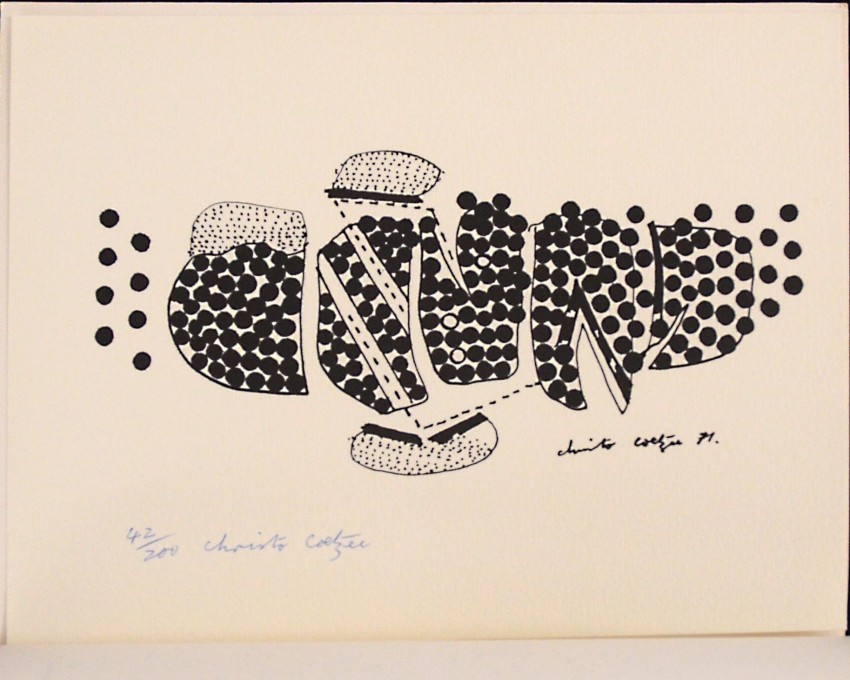 christo coetzee 71.
42/200 christo Coetzee